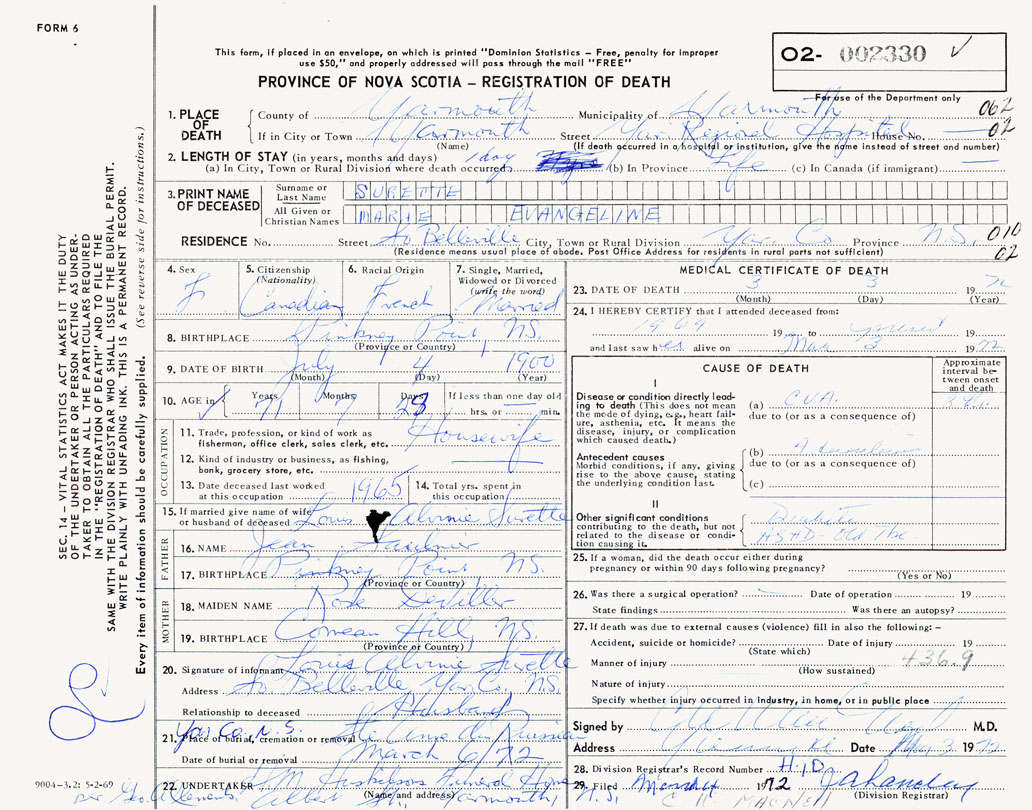 FORM 6
This form, if placed in an envelope, on which is printed "Dominion Statistics – Free, penalty for improper
use $50," and properly addressed will pass through the mail "FREE"
PROVINCE OF NOVA SCOTIA – REGISTRATION OF DEATH
O2- 002330 ✓
For use of the Department only
SEC. 14 – VITAL STATISTICS ACT MAKES IT THE DUTY
OF THE UNDERTAKER OR PERSON ACTING AS UNDER-
TAKER TO OBTAIN ALL THE PARTICULARS REQUIRED
IN THE "REGISTRATION OF DEATH" AND TO FILE THE
SAME WITH THE DIVISION REGISTRAR WHO SHALL ISSUE THE BURIAL PERMIT.
WRITE PLAINLY WITH UNFADING INK. THIS IS A PERMANENT RECORD.
Every item of information should be carefully supplied. (See reverse side for instructions.)
1. PLACE OF DEATH
County of Yarmouth Municipality of Yarmouth 062
If in City or Town Yarmouth Street Yar. Regional Hospital House No. 02
(Name) (If death occurred in a hospital or institution, give the name instead of street and number)
2. LENGTH OF STAY (in years, months and days)
(a) In City, Town or Rural Division where death occurred 1 day (b) In Province Life (c) In Canada (if immigrant) —
3. PRINT NAME OF DECEASED
Surname or Last Name SURETTE
All Given or Christian Names MARIE EVANGELINE
RESIDENCE No. Street Belleville City, Town or Rural Division Yar. Co. Province N.S. 010
02
(Residence means usual place of abode. Post Office Address for residents in rural parts not sufficient)
4. Sex F
5. Citizenship (Nationality) Canadian
6. Racial Origin French
7. Single, Married, Widowed or Divorced (write the word) Married
8. BIRTHPLACE Pinkney Point, N.S.
(Province or Country)
9. DATE OF BIRTH July 4 1900
(Month) (Day) (Year)
10. AGE in Years 71 Months 7 Days 28 If less than one day old
hrs. or min.
OCCUPATION
11. Trade, profession, or kind of work as
fishermen, office clerk, sales clerk, etc. Housewife
12. Kind of industry or business, as fishing,
bank, grocery store, etc. —
13. Date deceased last worked
at this occupation 1965
14. Total yrs. spent in
this occupation
15. If married give name of wife
or husband of deceased Louis Alvinie Surette
FATHER
16. NAME Jean
17. BIRTHPLACE Pinkney Point N.S.
(Province or Country)
MOTHER
18. MAIDEN NAME Rose
19. BIRTHPLACE Comeau Hill, N.S.
(Province or Country)
20. Signature of informant Louis Alvinie Surette
Address Belleville Yar. Co., N.S.
Relationship to deceased Husband
21. Place of burial, cremation or removal Yar Co. N.S.
Date of burial or removal March 6/72
22. UNDERTAKER H.M. Huskilson's Funeral Home
(Name and address) Yarmouth, N.S.
9004–3.2: 5-2-69
MEDICAL CERTIFICATE OF DEATH
23. DATE OF DEATH 3 3 19 72
(Month) (Day) (Year)
24. I HEREBY CERTIFY that I attended deceased from:
1969 19 to present 19
and last saw her alive on Mar 3 19 72
CAUSE OF DEATH
Approximate interval between onset and death
I
Disease or condition directly lead-
ing to death (This does not mean
the mode of dying, e.g., heart fail-
ure, asthenia, etc. It means the
disease, injury, or complication
which caused death.)
(a) C.V.A.
due to (or as a consequence of)
Antecedent causes
Morbid conditions, if any, giving
rise to the above cause, stating
the underlying condition last.
(b)
due to (or as a consequence of)
(c)
II
Other significant conditions
contributing to the death, but not
related to the disease or condi-
tion causing it.
Diabetes
ASHD - Old Tbc
25. If a woman, did the death occur either during
pregnancy or within 90 days following pregnancy?
(Yes or No)
26. Was there a surgical operation? Date of operation 19
State findings Was there an autopsy?
27. If death was due to external causes (violence) fill in also the following: –
Accident, suicide or homicide? Date of injury 19
(State which)
Manner of injury 436.9
(How sustained)
Nature of injury
Specify whether injury occurred in industry, in home, or in public place
Signed by M.D.
Address Date Mar 3 1972
28. Division Registrar's Record Number
29. Filed 1972
(Division Registrar)